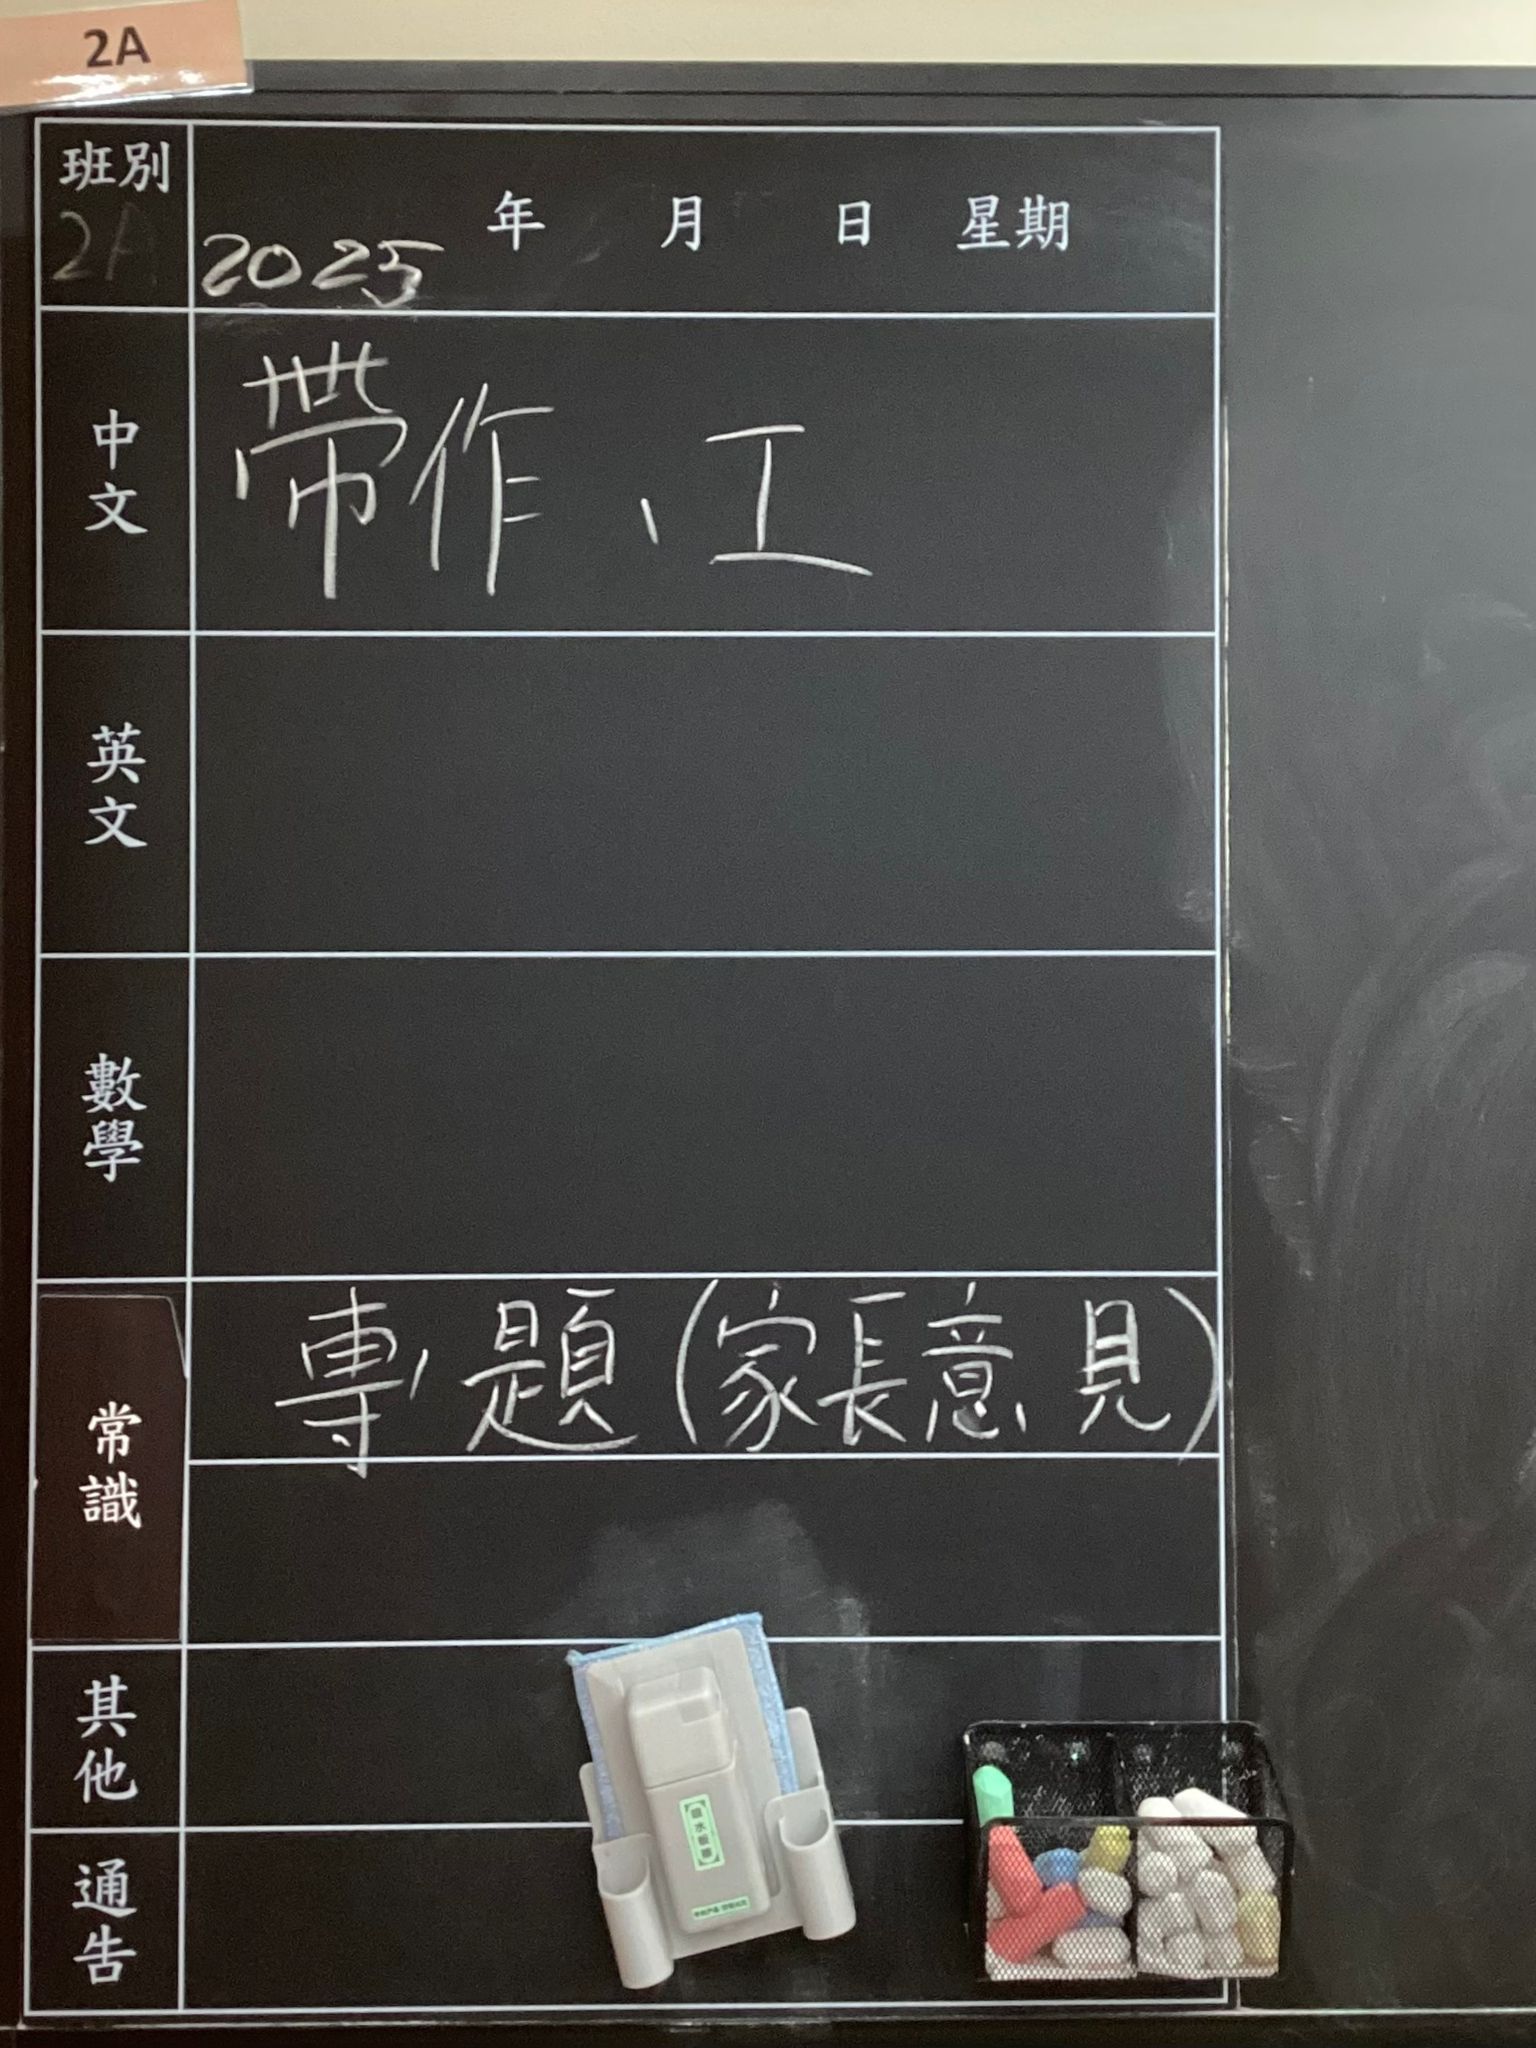 2A
班別
2A
2025 年 月 日 星期
中文
帶作、工
英文
數學
常識
專題(家長意見)
其他
通告